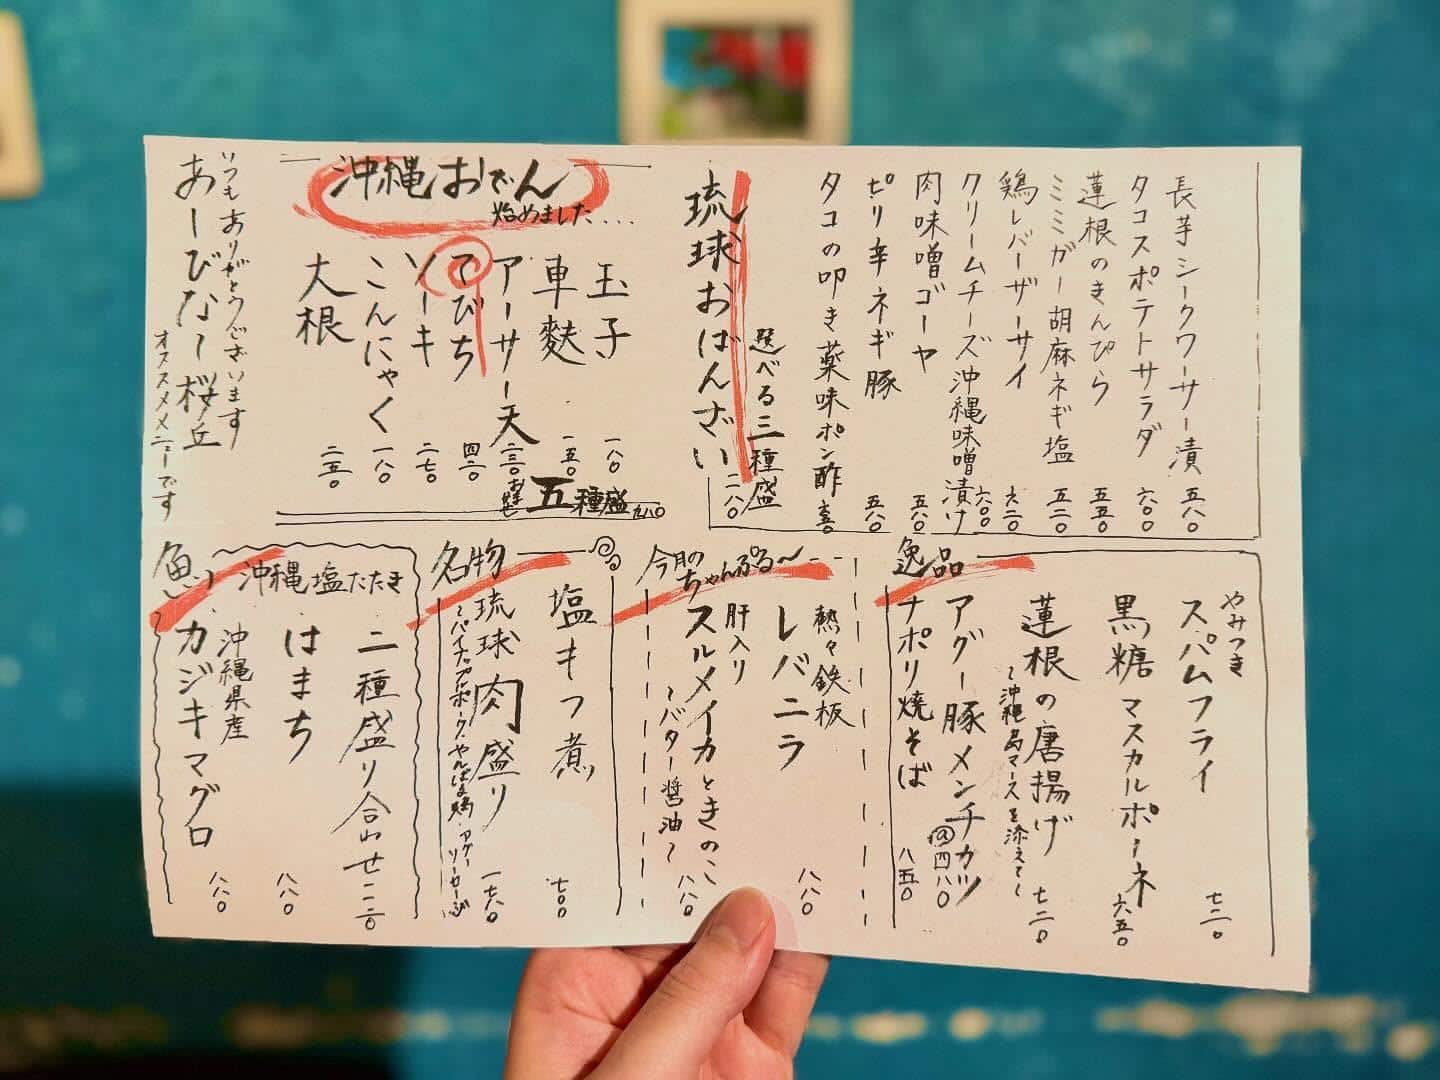 長芋シークワーサー漬 五八〇
タコスポテトサラダ 六〇〇
蓮根のきんぴら 五五〇
ミミガー胡麻ネギ塩 五二〇
鶏レバーザーサイ 六二〇
クリームチーズ沖縄味噌漬け 六〇〇
肉味噌ゴーヤ 五八〇
ピリ辛ネギ豚 五八〇
タコの叩き薬味ポン酢
選べる三種盛
琉球おばんざい 一二八〇
沖縄おでん
始めました....
玉子 一八〇
車麩 一五〇
アーサー天 二三〇
てびち 四二〇
ソーキ 二七〇
こんにゃく 一八〇
大根 二五〇
五種盛 九八〇
いつもありがとうございます
あーびなー桜丘
オススメメニューです
逸品
やみつき
スパムフライ 七二〇
黒糖マスカルポーネ 六五〇
蓮根の唐揚げ 七二〇
〜沖縄島マースを添えて〜
アグー豚メンチカツ @四八〇
ナポリ焼そば 八五〇
今月のちゃんぷる〜
熱々鉄板
レバニラ 八八〇
肝入り
スルメイカときのこ 八八〇
〜バター醤油〜
名物
塩もつ煮 七〇〇
琉球肉盛り 一七八〇
〜パイナップルポーク・やんばる鶏・アグーソーセージ
魚
沖縄塩たたき
二種盛り合わせ 一一二〇
はまち 八八〇
沖縄県産
カジキマグロ 八八〇